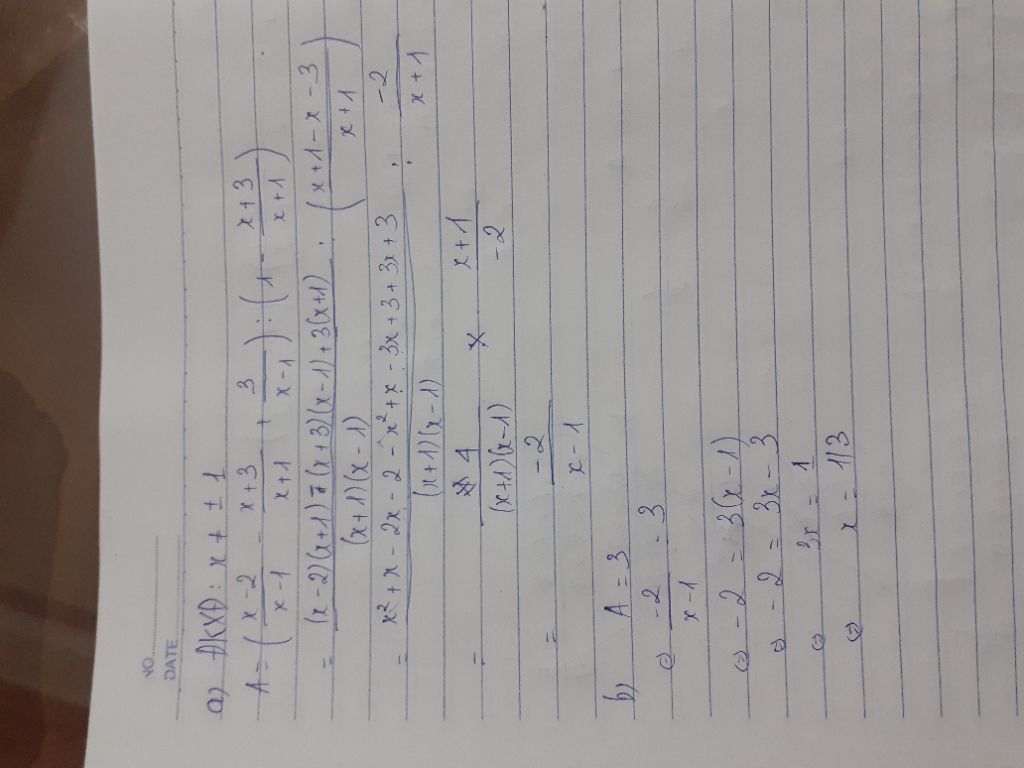 NO.
DATE
a) ĐKXĐ: x ≠ ± 1
A = ( x-2 / x-1 - x+3 / x+1 + 3 / x-1 ) : ( 1 - x+3 / x+1 )
= (x-2)(x+1) - (x+3)(x-1) + 3(x+1) / (x+1)(x-1) : ( x+1-x-3 / x+1 )
= x² + x - 2x - 2 - x² + x - 3x + 3 + 3x + 3 / (x+1)(x-1) : -2 / x+1
= 4 / (x+1)(x-1) × x+1 / -2
= -2 / x-1
b) A = 3
⇔ -2 / x-1 = 3
⇔ -2 = 3(x-1)
⇔ -2 = 3x - 3
⇔ 3x = 1
⇔ x = 1/3